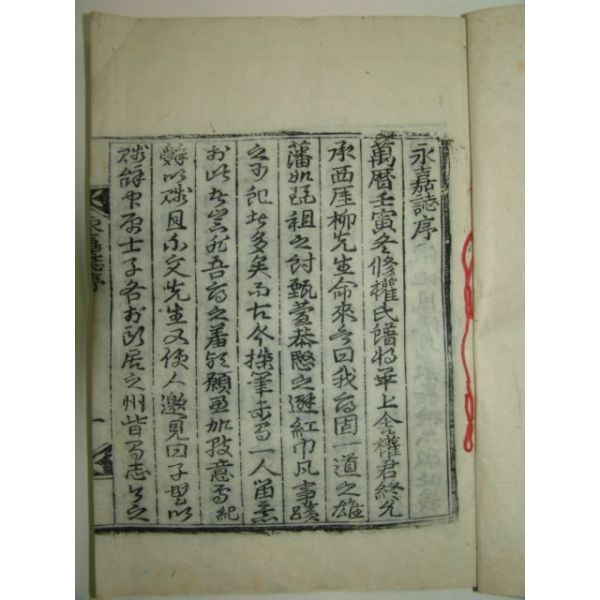 永嘉誌序
萬曆壬寅冬修權氏譜將畢上舍權君終允
承西厓柳先生命來告曰我府固一道之雄
藩如麗祖之討甄萱恭愍之避紅巾凡事蹟
之可記者多矣而古今操筆者何一人留意
於此者豈非吾府之羞欤願亟加孜意焉紀
辭以疾且不文先生又使人邀見曰子望以
疾辭 士子各於所居之州皆有志
永嘉誌序
一